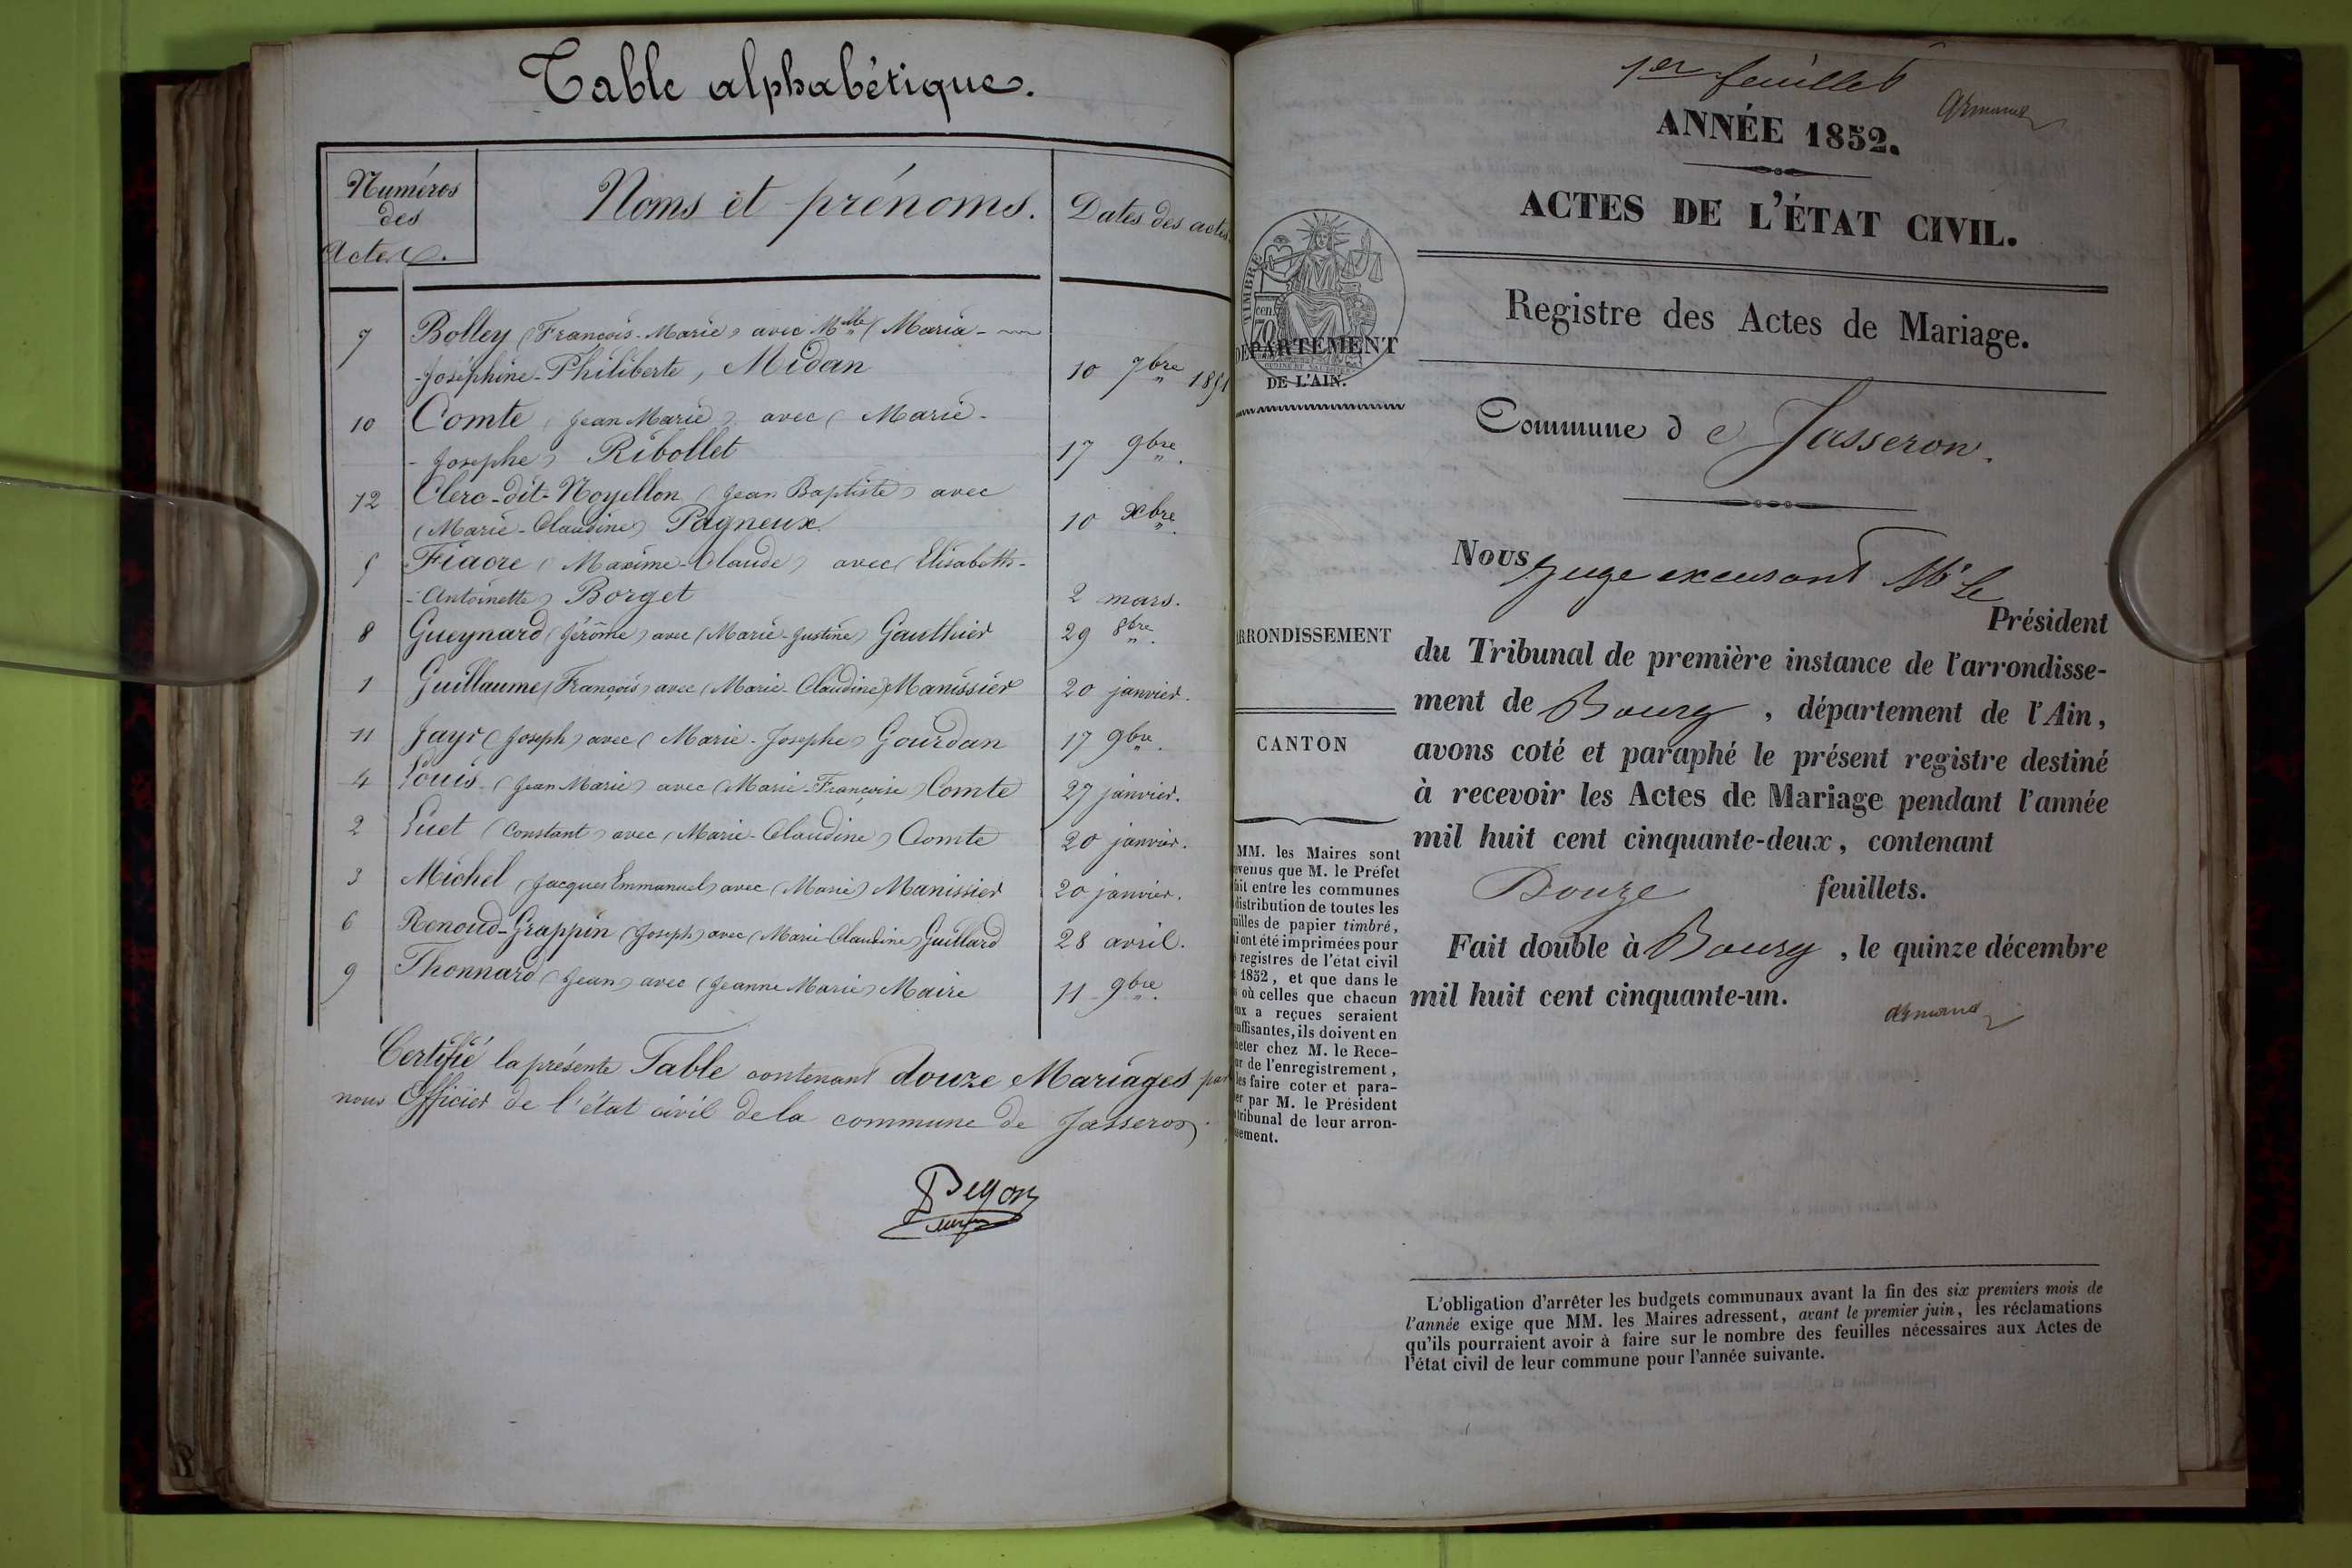 Table alphabétique.
Numéros
des
Actes.
Noms et prénoms.
Dates des actes.
7 Bolley (François-Marie) avec Mlle (Maria-
-Joséphine-Philiberte, Midan 10 7bre 1851
10 Comte (Jean Marie) avec (Marie-
-Josephe) Ribollet 17 9bre "
12 Clerc-dit-Noyellon (Jean Baptiste) avec
(Marie-Claudine) Pagneux 10 Xbre "
5 Fiacre (Maxime-Claude) avec (Elisabeth-
-Antoinette) Borget 2 mars.
8 Gueynard (Jérôme) avec (Marie-Justine) Gauthier 29 8bre "
1 Guillaume (François) avec (Marie Claudine) Manissier 20 janvier.
11 Jayr (Joseph) avec (Marie-Josephe) Gourdan 17 9bre
4 Louis (Jean Marie) avec (Marie-Françoise) Comte 27 janvier.
2 Luet (Constant) avec (Marie-Claudine) Comte 20 janvier.
3 Michel (Jacques Emmanuel) avec (Marie) Manissier 20 janvier.
6 Renoud-Grappin (Joseph) avec (Marie Claudine) Guillard 28 avril.
9 Thonnard (Jean) avec (Jeanne Marie) Maire 11 9bre "
Certifié la présente Table contenant douze Mariages par
nous Officier de l'état civil de la commune de Jasseron
1er feuillet
Armand
ANNÉE 1852.
ACTES DE L'ÉTAT CIVIL.
TIMBRE
70 cen.
DÉPARTEMENT
DE L'AIN.
Registre des Actes de Mariage.
Commune de Jasseron.
Nous Juge excusant Mr le
Président
du Tribunal de première instance de l'arrondisse-
ment de Bourg, département de l'Ain,
avons coté et paraphé le présent registre destiné
à recevoir les Actes de Mariage pendant l'année
mil huit cent cinquante-deux, contenant
Douze feuillets.
Fait double à Bourg, le quinze décembre
mil huit cent cinquante-un.
Armand
RRONDISSEMENT
CANTON
MM. les Maires sont
evenus que M. le Préfet
fait entre les communes
distribution de toutes les
uilles de papier timbré,
i ont été imprimées pour
s registres de l'état civil
e 1852, et que dans le
s où celles que chacun
eux a reçues seraient
suffisantes, ils doivent en
heter chez M. le Rece-
ur de l'enregistrement,
les faire coter et para-
er par M. le Président
tribunal de leur arron-
ssement.
L'obligation d'arrêter les budgets communaux avant la fin des six premiers mois de
l'année exige que MM. les Maires adressent, avant le premier juin, les réclamations
qu'ils pourraient avoir à faire sur le nombre des feuilles nécessaires aux Actes de
l'état civil de leur commune pour l'année suivante.